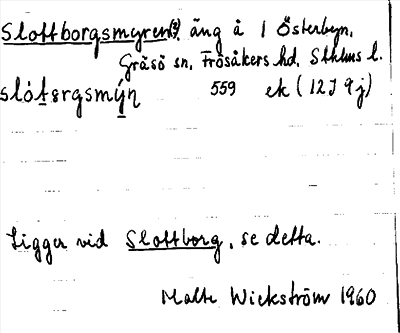 Slottborgsmyren(?), äng å 1 Österbyn,
Gräsö sn, Frösåkers hd, Sthlms l.
slótsrgsmýn 559 ek (12J 9j)
Ligger vid Slottborg, se detta.
Malte Wickström 1960